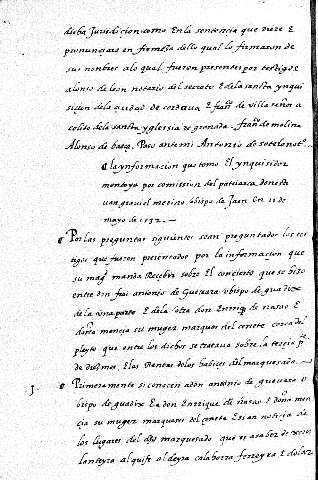 dicha Juredicion como En la sentencia que dieze E
pronunciaro en firmeza dello qual lo firmaron de
sus nombres a lo qual fueron presentes por testigos
alonso de leon notario del secreto E de la santa ynqui
sicion de la ciudad de cordova E fran^co de villa señor a
colito de la santa yglesia de granada fran^co de molina
Alonso de baeça. Paso ante mi Antonio de sotelo not^o
la ynformacion que tomo El ynquisidor
montoya por comission del patriarca don est
van graviel merino obispo de Jaen En 11 de
mayo de 1532.
Por las preguntas siguientes sean preguntados los tes
tigos que fueren presentados por la informacion que
su mag^d manda Recebir sobre El concierto que se hizo
entre don frai antonio de Guevara obispo de guadix
de la una parte E de la otra don Enrriq de nasao E
doña mencia su muger marques del cenete cerca del
pleyto que entre los dichos se tratava sobre la tercia p^te
de diezmos E las Rentas de los habices del marquesado
1. Primeramente si conocen a don antonio de guevara o
bispo de guadix E a don Enrrique de nasao E doña men
cia su muger marqueses del cenete E si an noticia de
los lugares del dho marquesado que es a saber de xeres
lanteyra alquife aldeyra calahorra ferreyra E dolar